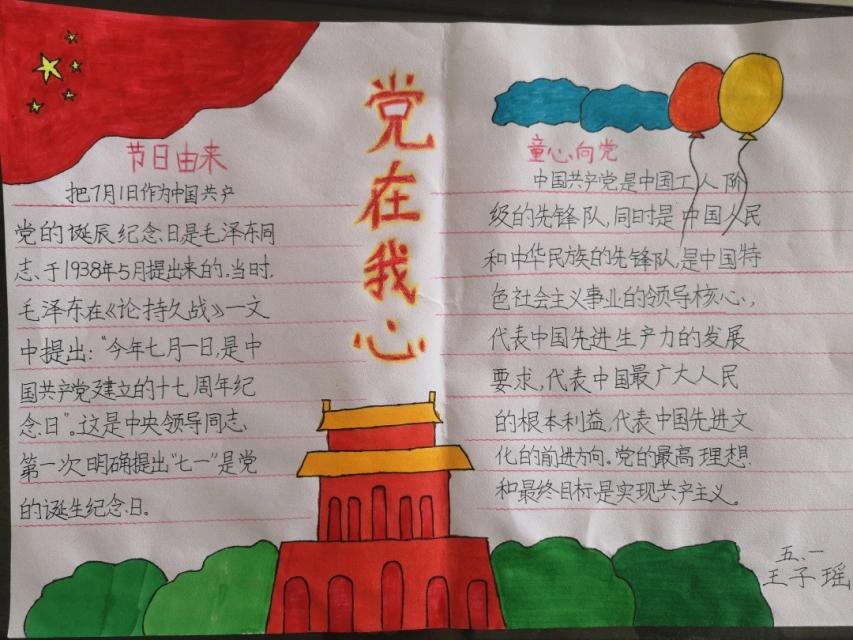 党在我心
节日由来
把7月1日作为中国共产
党的诞辰纪念日是毛泽东同
志、于1938年5月提出来的。当时.
毛泽东在《论持久战》一文
中提出:"今年七月一日,是中
国共产党建立的十七周年纪
念日"。这是中央领导同志、
第一次明确提出"七一"是党
的诞生纪念日。
童心向党
中国共产党是中国工人阶
级的先锋队,同时是中国人民
和中华民族的先锋队,是中国特
色社会主义事业的领导核心,
代表中国先进生产力的发展
要求,代表中国最广大人民
的根本利益,代表中国先进文
化的前进方向。党的最高理想
和最终目标是实现共产主义。
五、一
王子瑶